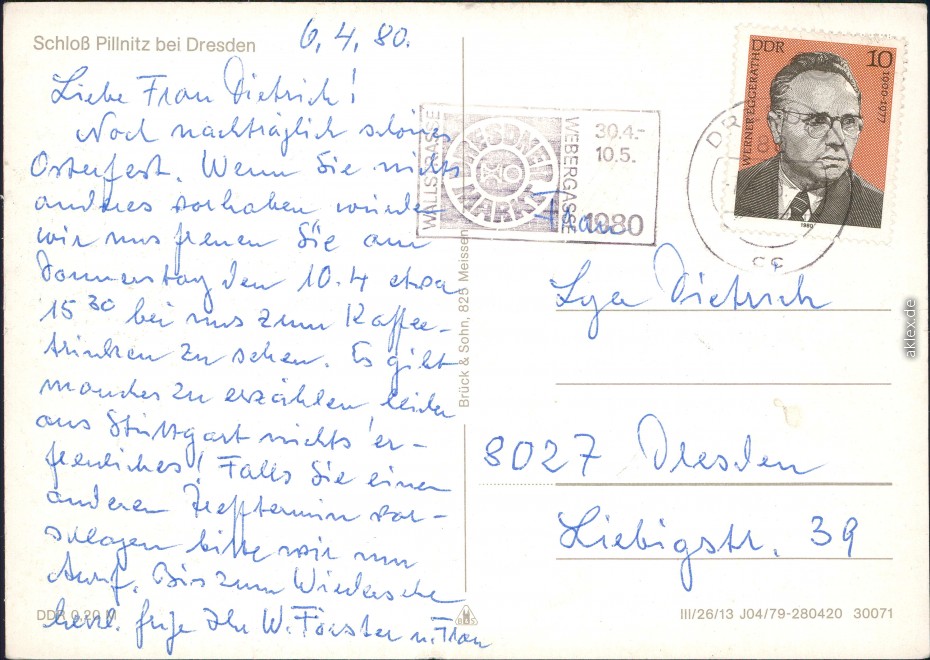 Schloß Pillnitz bei Dresden
6.4.80.
Liebe Frau Dietrich!
Noch nachträglich schönes
Osterfest. Wenn Sie nichts
anderes vorhaben würden
wir uns freuen Sie am
Donnerstag den 10.4 etwa
15 30 bei uns zum Kaffee-
trinken zu sehen. Es gibt
manches zu erzählen leider
aus Stuttgart nichts er-
freuliches! Falls Sie einen
anderen Treffterminn vor-
schlagen bitte wir um
Anruf. Bis zum Wiedersehe
herzl. Grüße Ihr W. Förster u. Frau
DDR 0,20 M
Brück & Sohn, 825 Meissen
WALLSTRASSE
DRESDNER
MARKT
WEBERGASSE
30.4.-
10.5.
1980
DDR
10
WERNER EGGERATH
1900-1977
1980
Frau
Lya Dietrich
8027 Dresden
Liebigstr. 39
III/26/13 J04/79-280420 30071
aklex.de